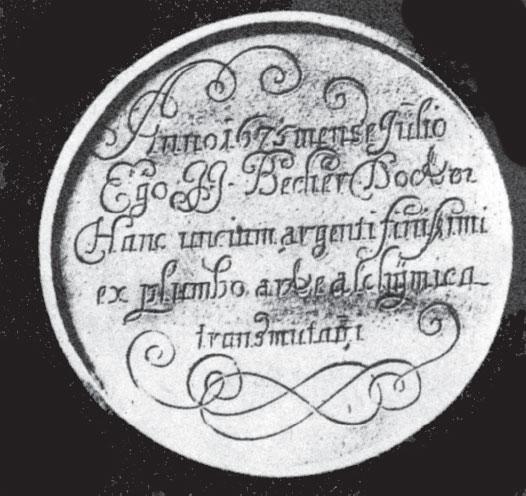 Anno 1675 mense Julio
Ego J J. Becher Doctor
Hanc unciam argenti finissimi
ex plumbo arte alchymica
transmutavi